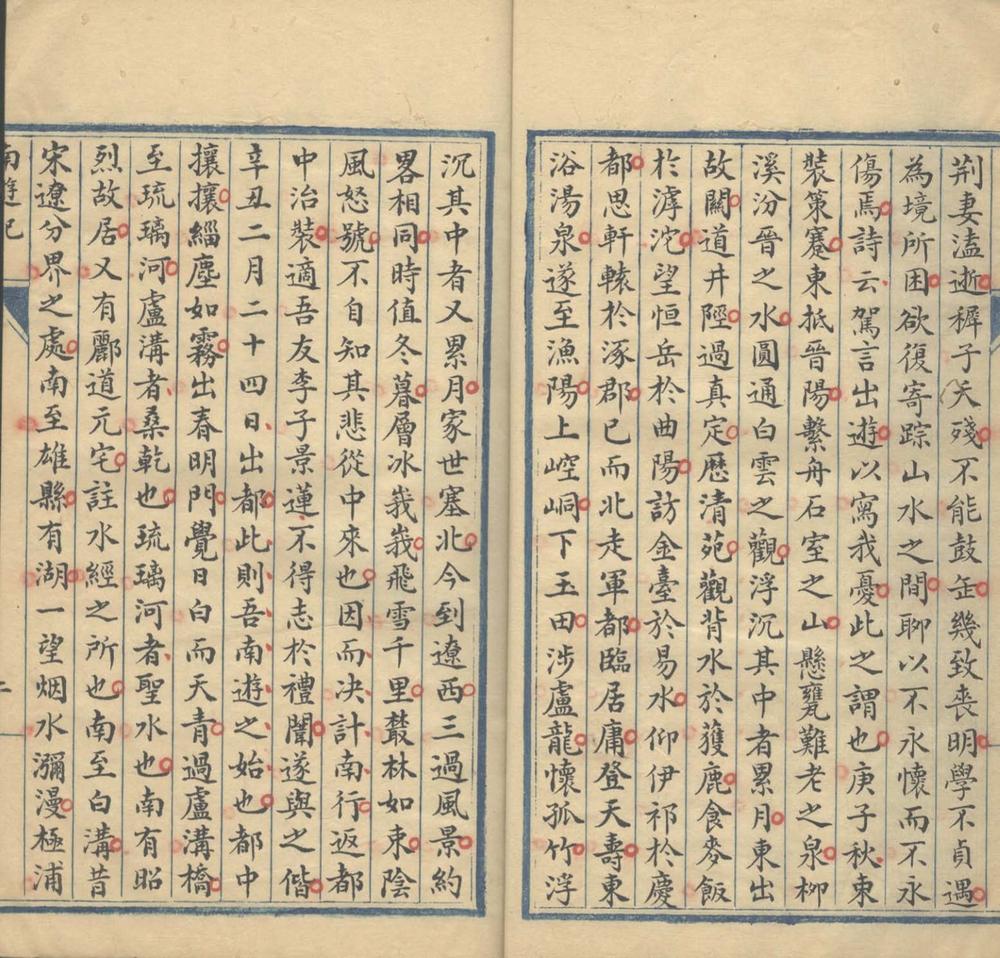 荆妻溘逝穉子夭殘不能鼓缶幾致喪明學不貞遇
為境所困欲復寄踪山水之間聊以不永懷而不永
傷焉詩云駕言出遊以寫我憂此之謂也庚子秋束
裝策蹇東抵晉陽繫舟石室之山懸甕難老之泉柳
溪汾晉之水圓通白雲之觀浮沉其中者累月東出
故關道井陘過真定歷清苑觀背水於獲鹿食麥飯
於滹沱望恒岳於曲陽訪金臺於易水仰伊祁於慶
都思軒轅於涿郡已而北走軍都臨居庸登天壽東
浴湯泉遂至漁陽上崆峒下玉田涉盧龍懷孤竹浮
沉其中者又累月家世塞北今到遼西三過風景約
畧相同時值冬暮層冰峩峩飛雪千里叢林如束陰
風怒號不自知其悲從中來也因而决計南行返都
中治裝適吾友李子景蓮不得志於禮闈遂與之偕
辛丑二月二十四日出都此則吾南遊之始也都中
攘攘緇塵如霧出春明門覺日白而天青過盧溝橋
至琉璃河盧溝者桑乾也琉璃河者聖水也南有昭
烈故居又有酈道元宅註水經之所也南至白溝昔
宋遼分界之處南至雄縣有湖一望烟水瀰漫極浦
南遊記